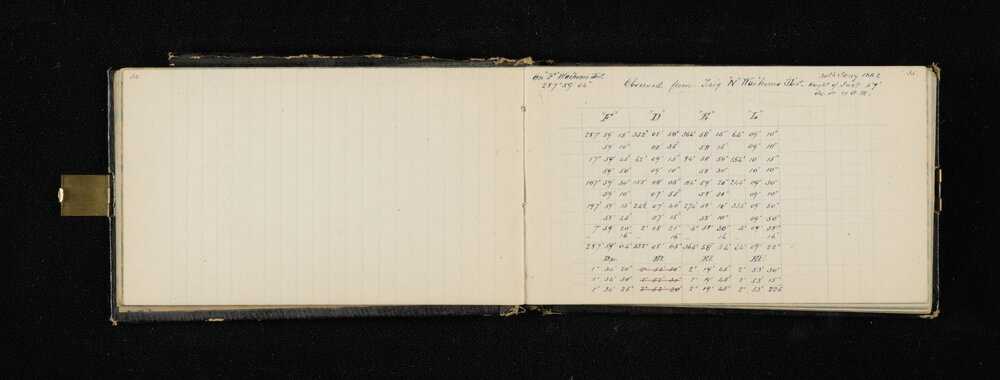 34.
35.
on "F" Waikomo Dist.
287° 59' 04"
Observed from Trig "N" Waikomo Dist.
30th Jany 1882
Height of Inst 4'9"
"F" "D" "K" "L"
287° 59' 15" 332° 08' 50" 364° 58' 15" 64° 09' 10"
59' 10" 08' 35" 58' 15" 09' 10"
17° 59' 45" 62° 09' 15" 94° 58' 50" 154° 10' 15"
59' 50" 09' 10" 58' 30" 10' 10"
107° 59' 30" 152° 08' 05" 184° 59' 20" 244° 09' 30"
59' 10" 07' 55" 58' 50" 09' 10"
197° 59' 15" 242° 07' 40" 274° 58' 10" 334° 09' 50"
58' 45" 07' 15" 58' 10" 09' 50"
7° 59' 20" 2° 08' 21" 4° 58' 30" 4° 09' 38"
16 16 16 16
287° 59' 04" 332° 08' 05" 364° 58' 14" 64° 09' 22"
De. El. El. El.
1° 34' 20" 2° 52' 30" 2° 19' 45" 2° 53' 30"
1° 34' 30" 2° 52' 30" 2° 19' 45" 2° 53' 15"
1° 34' 25" 2° 52' 30" 2° 19' 45" 2° 53' 22.5